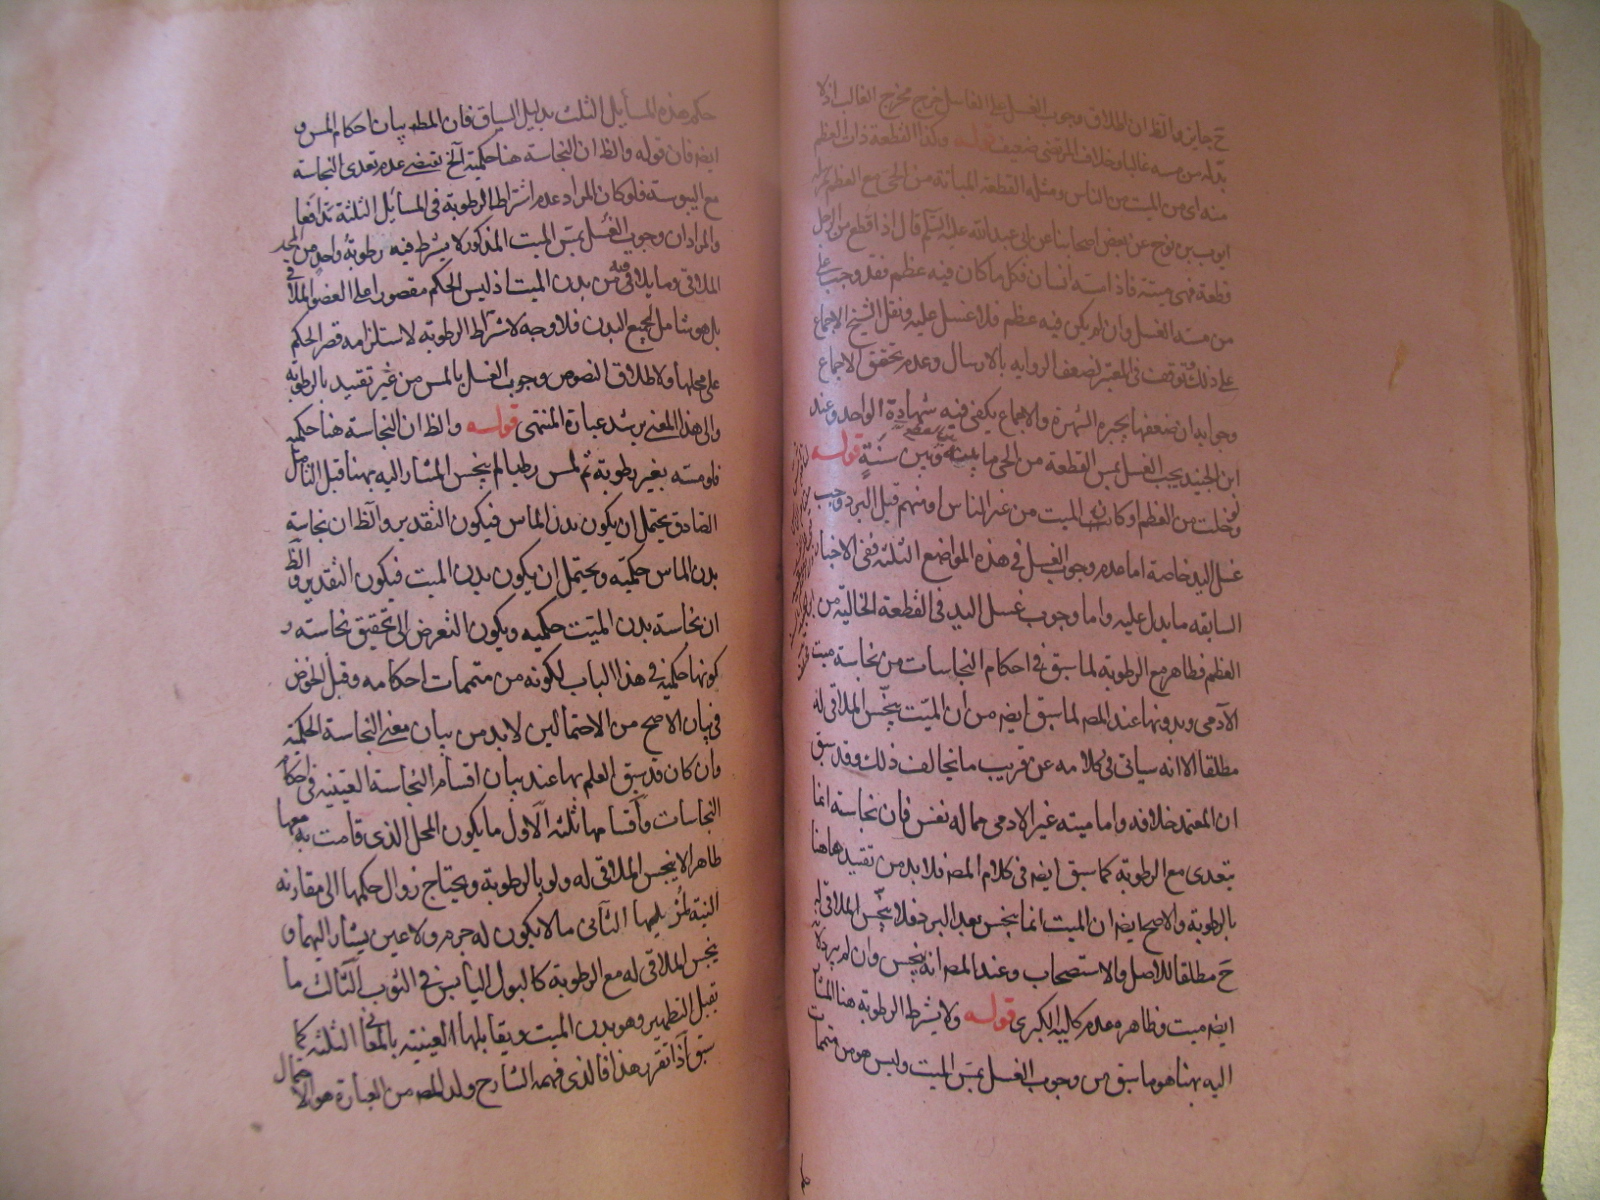 ح جاين والظ ان اطلاق وجوب الغسل على الغاسل خرج مخرج الغالب اذ لا
بد له من مسه غالبا وخلاف المرتضى ضعيف قوله وكذا القطعة ذات العظم
منه اى من الميت من الناس ومثله القطعة المبانة من الحى مع العظم
ايوب بن نوح عن بعض اصحابنا عن ابى عبد الله عليه السلم قال اذا قطع من الرجل
قطعة فهى ميتة فاذا مسه انسان فكل ما كان فيه عظم فقد وجب على
من مسه الغسل وان لم يكن فيه عظم فلا غسل عليه ونقل الشيخ الاجماع
على ذلك وتوقف فى المعتبر لضعف الروايه بالارسال وعدم تحقق الاجماع
وجوابه ان ضعفها يجبره الشهرة والاجماع يكفى فيه شهادة الواحد وعند
ابن الجنيد يجب الغسل بمس القطعة من الحى ما بينه وبين سنة قوله
لو خلت من العظم او كان الميت من غير الناس او منهم قبل البرد وجب
غسل اليد خاصة اما عدم وجوب الغسل فى هذه المواضع الثلثة ففى الاخبار
السابقه ما يدل عليه واما وجوب غسل اليد فى القطعة الخالية من
العظم فظاهر مع الرطوبة لما سبق فى احكام النجاسات من نجاسة ميت
الآدمى وبدونها عند المص لما سبق ايضه من ان الميت ينجس الملاقى له
مطلقا الا انه سياتى فى كلامه عن قريب ما يخالف ذلك وقد سبق
ان المعتمد خلافه واما ميته غير الادمى مما له نفس فان نجاسة انما
تتعدى مع الرطوبة كما سبق ايضه فى كلام المصه فلا بد من تقييد ها هنا
بالرطوبة والاصح ايضه ان الميت انما ينجس بعد البرد فلا ينجس الملاقى له
ح مطلقا للاصل والاستصحاب وعند المصه انه ينجس وان لم يبرد لانه
ايضه ميت وظاهره عدم كلية الكبرى قوله ولا يشترط الرطوبة هنا المشار
اليه بهنا هو ما سبق من وجوب الغسل بمس الميت وليس هو من متممات
حكم هذه المسأيل الثلث بدليل السياق فان المطه بيان احكام المس و
ايضه فان قوله والظ ان النجاسة هنا حكمية الخ يقتضى عدم تعدى النجاسة
مع اليبوسة فلو كان المراد عدم اشتراط الرطوبة فى المسائل الثلثة تدافعا
والمراد ان وجوب الغسل بمس الميت المذكور لا يشترط فيه رطوبة واحد من الجسد
الملاقى وما يلاقى فيه من بدن الميت اذ ليس الحكم مقصورا على العضو الملاقى
بل هو شامل لجميع البدن فلا وجه لاشتراط الرطوبة لاستلزامه قصر الحكم
على محلها ولاطلاق النصوص وجوب الغسل بالمس من غير تقييد بالرطوبة
والى هذا المعنى يرشد عبارة المنتهى قوله والظ ان النجاسة هنا حكمية
فلو مسه بغير رطوبة ثم لمس رطبا لم ينجس المشار اليه بهنا قبل التامل
الصادق يحتمل ان يكون بدن الماس فيكون التقدير والظ ان نجاسة
بدن الماس حكمية ويحتمل ان يكون بدن الميت فيكون التقدير والظ
ان نجاسة بدن الميت حكميه ويكون التعرض الى تحقيق نجاسته و
كونها حكمية فى هذا الباب لكونه من متممات احكامه وقبل الخوض
فى بيان الاصح من الاحتمالين لا بد من بيان معنى النجاسة الحكمية
وان كان قد سبق العلم بها عند بيان اقسام النجاسة العينيه فى احكام
النجاسات وأقسامها ثلثه الاول ما يكون المحل الذى قامت به معها
طاهرا لا ينجس الملاقى له ولو بالرطوبة ويحتاج زوال حكمها الى مقارنه
النية لمزيلها الثانى ما لا يكون له جرم ولا عين يشار اليهما و
ينجس الملاقى له مع الرطوبة كالبول اليابس فى الثوب الثالث ما
يقبل التطهير وهو بدن الميت ويقابلها العينية بالمعانى الثلثه كما
سبق اذا تقرر هذا فالذى فهمه الشارح ولد المصه من العبارة هو الاحتمال